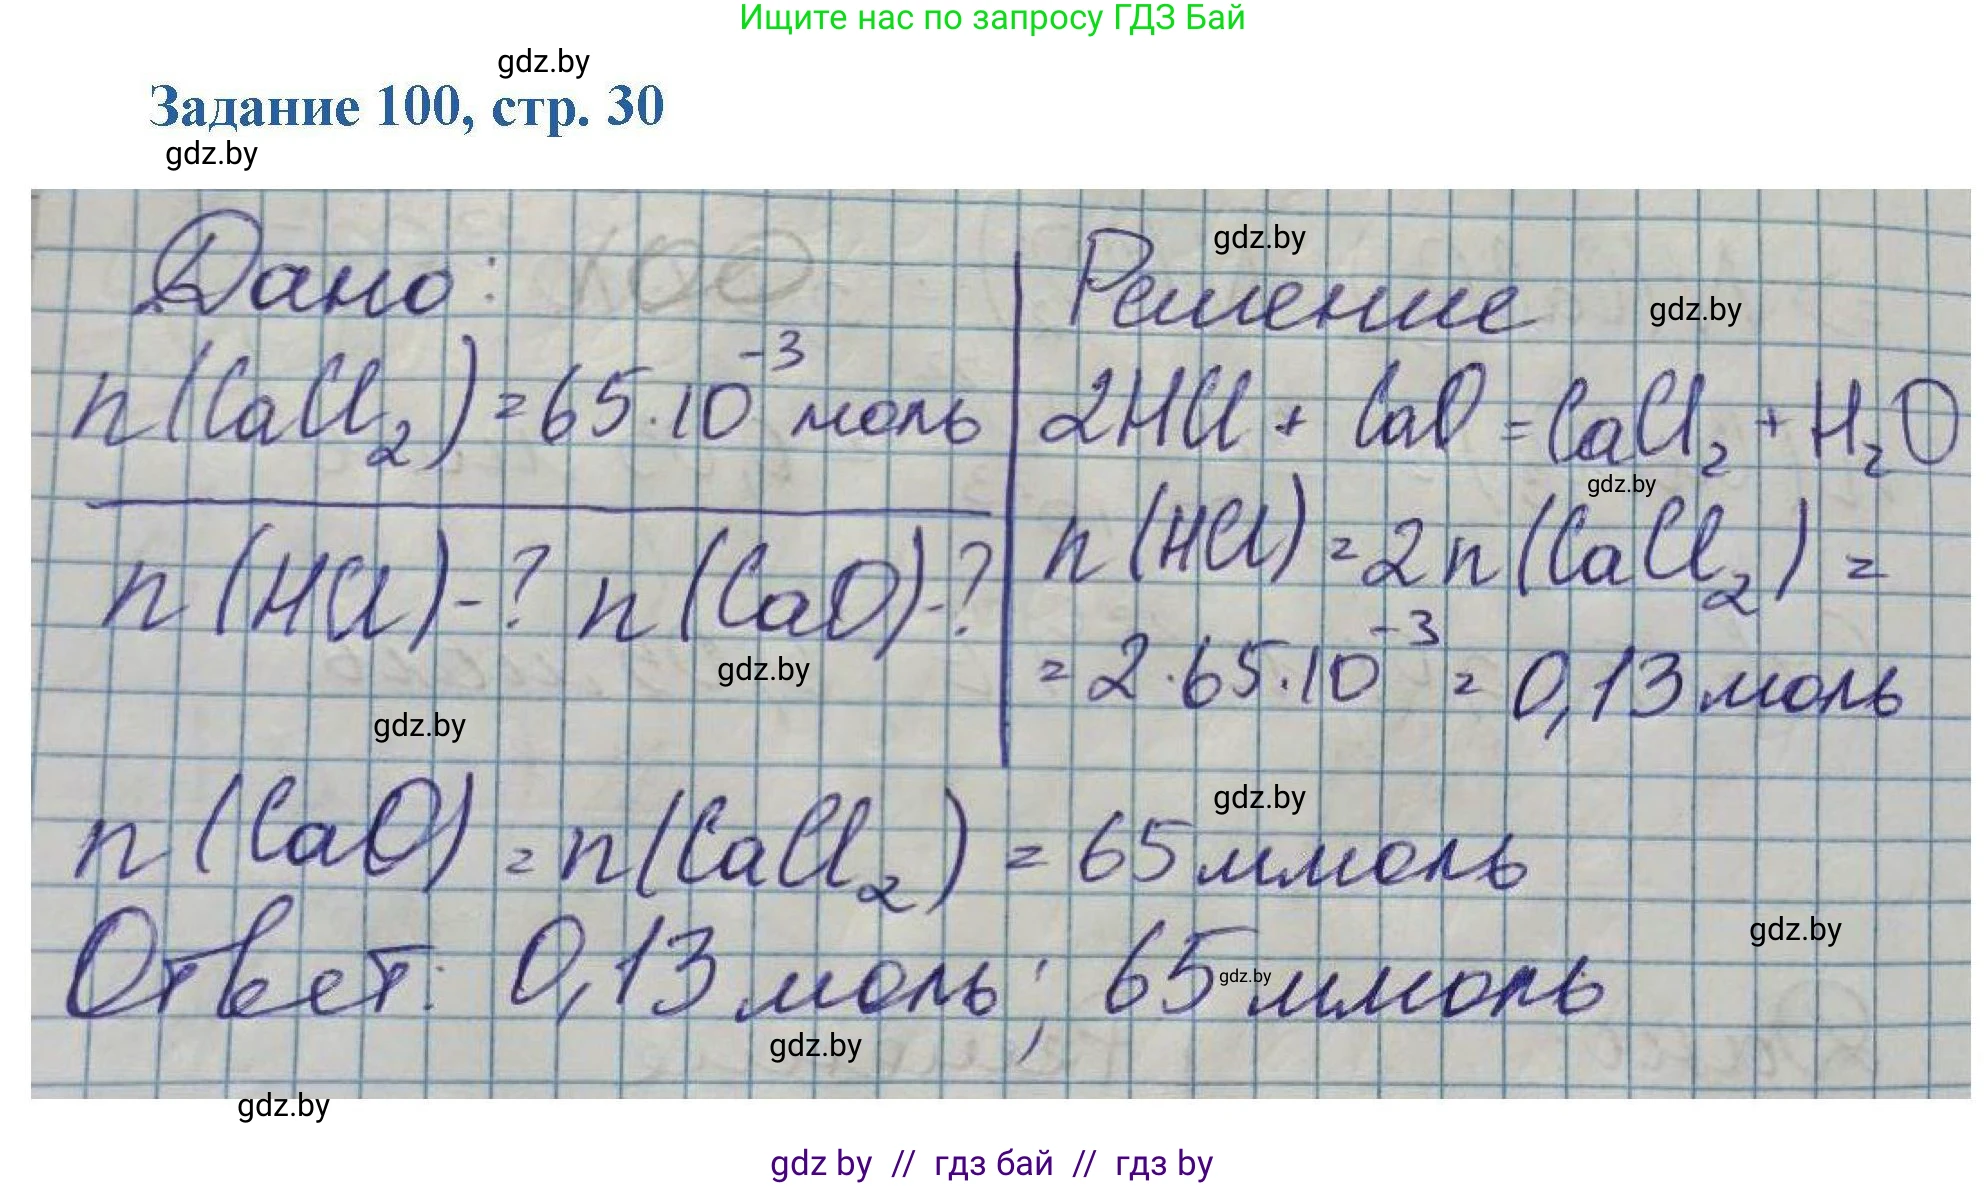 Ищите нас по запросу ГДЗ Бай
gdz.by
Задание 100, стр. 30
gdz.by
Дано: 100
n(CaCl₂) = 65·10⁻³ моль
n(HCl)-? n(CaO)-?
gdz.by
gdz.by
Решение
gdz.by
gdz.by
2HCl + CaO = CaCl₂ + H₂O
gdz.by
n(HCl) = 2n(CaCl₂) =
= 2·65·10⁻³ = 0,13 моль
gdz.by
n(CaO) = n(CaCl₂) = 65 ммоль
gdz.by
Ответ: 0,13 моль; 65 ммоль
gdz.by
gdz.by
gdz.by
gdz by // гдз бай // гдз by